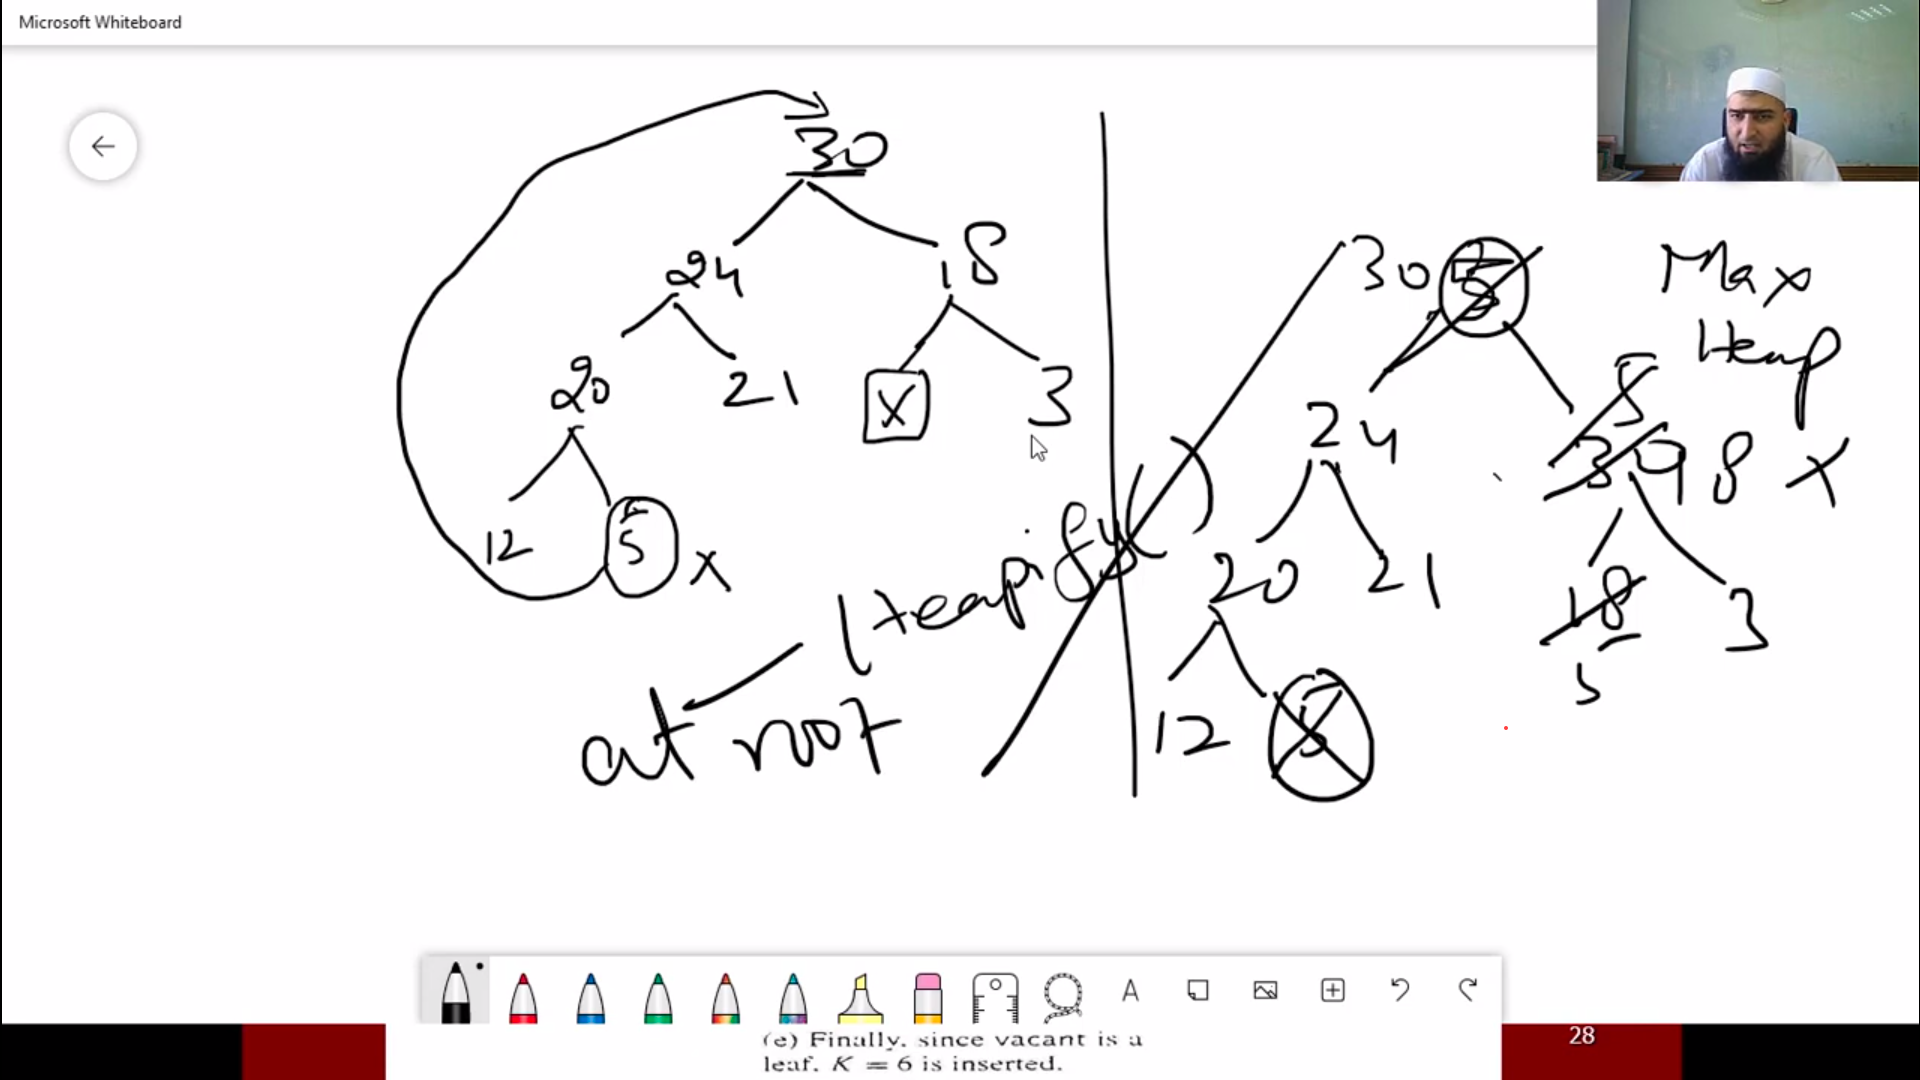 Microsoft Whiteboard
30
24
18
20
21
X
3
12
5
X
Heapify( )
at root
30
Max
Heap
24
3
9 8 X
20
21
18
3
5
12
5
A
(e) Finally, since vacant is a
leaf, K = 6 is inserted.
28